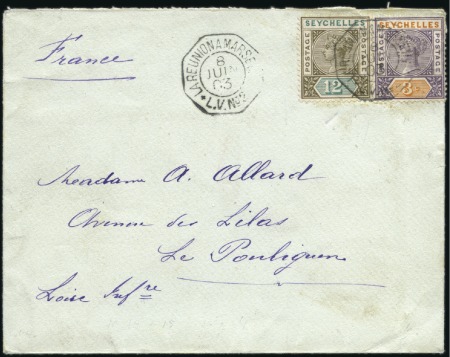 France
LA REUNION A MARSE
8
JUIN
03
L.V. No2
SEYCHELLES
POSTAGE
POSTAGE
12
SEYCHELLES
POSTAGE
POSTAGE
3
Madame A. Allard
Avenue des Lilas
Le Pouliguen
Loire Infre